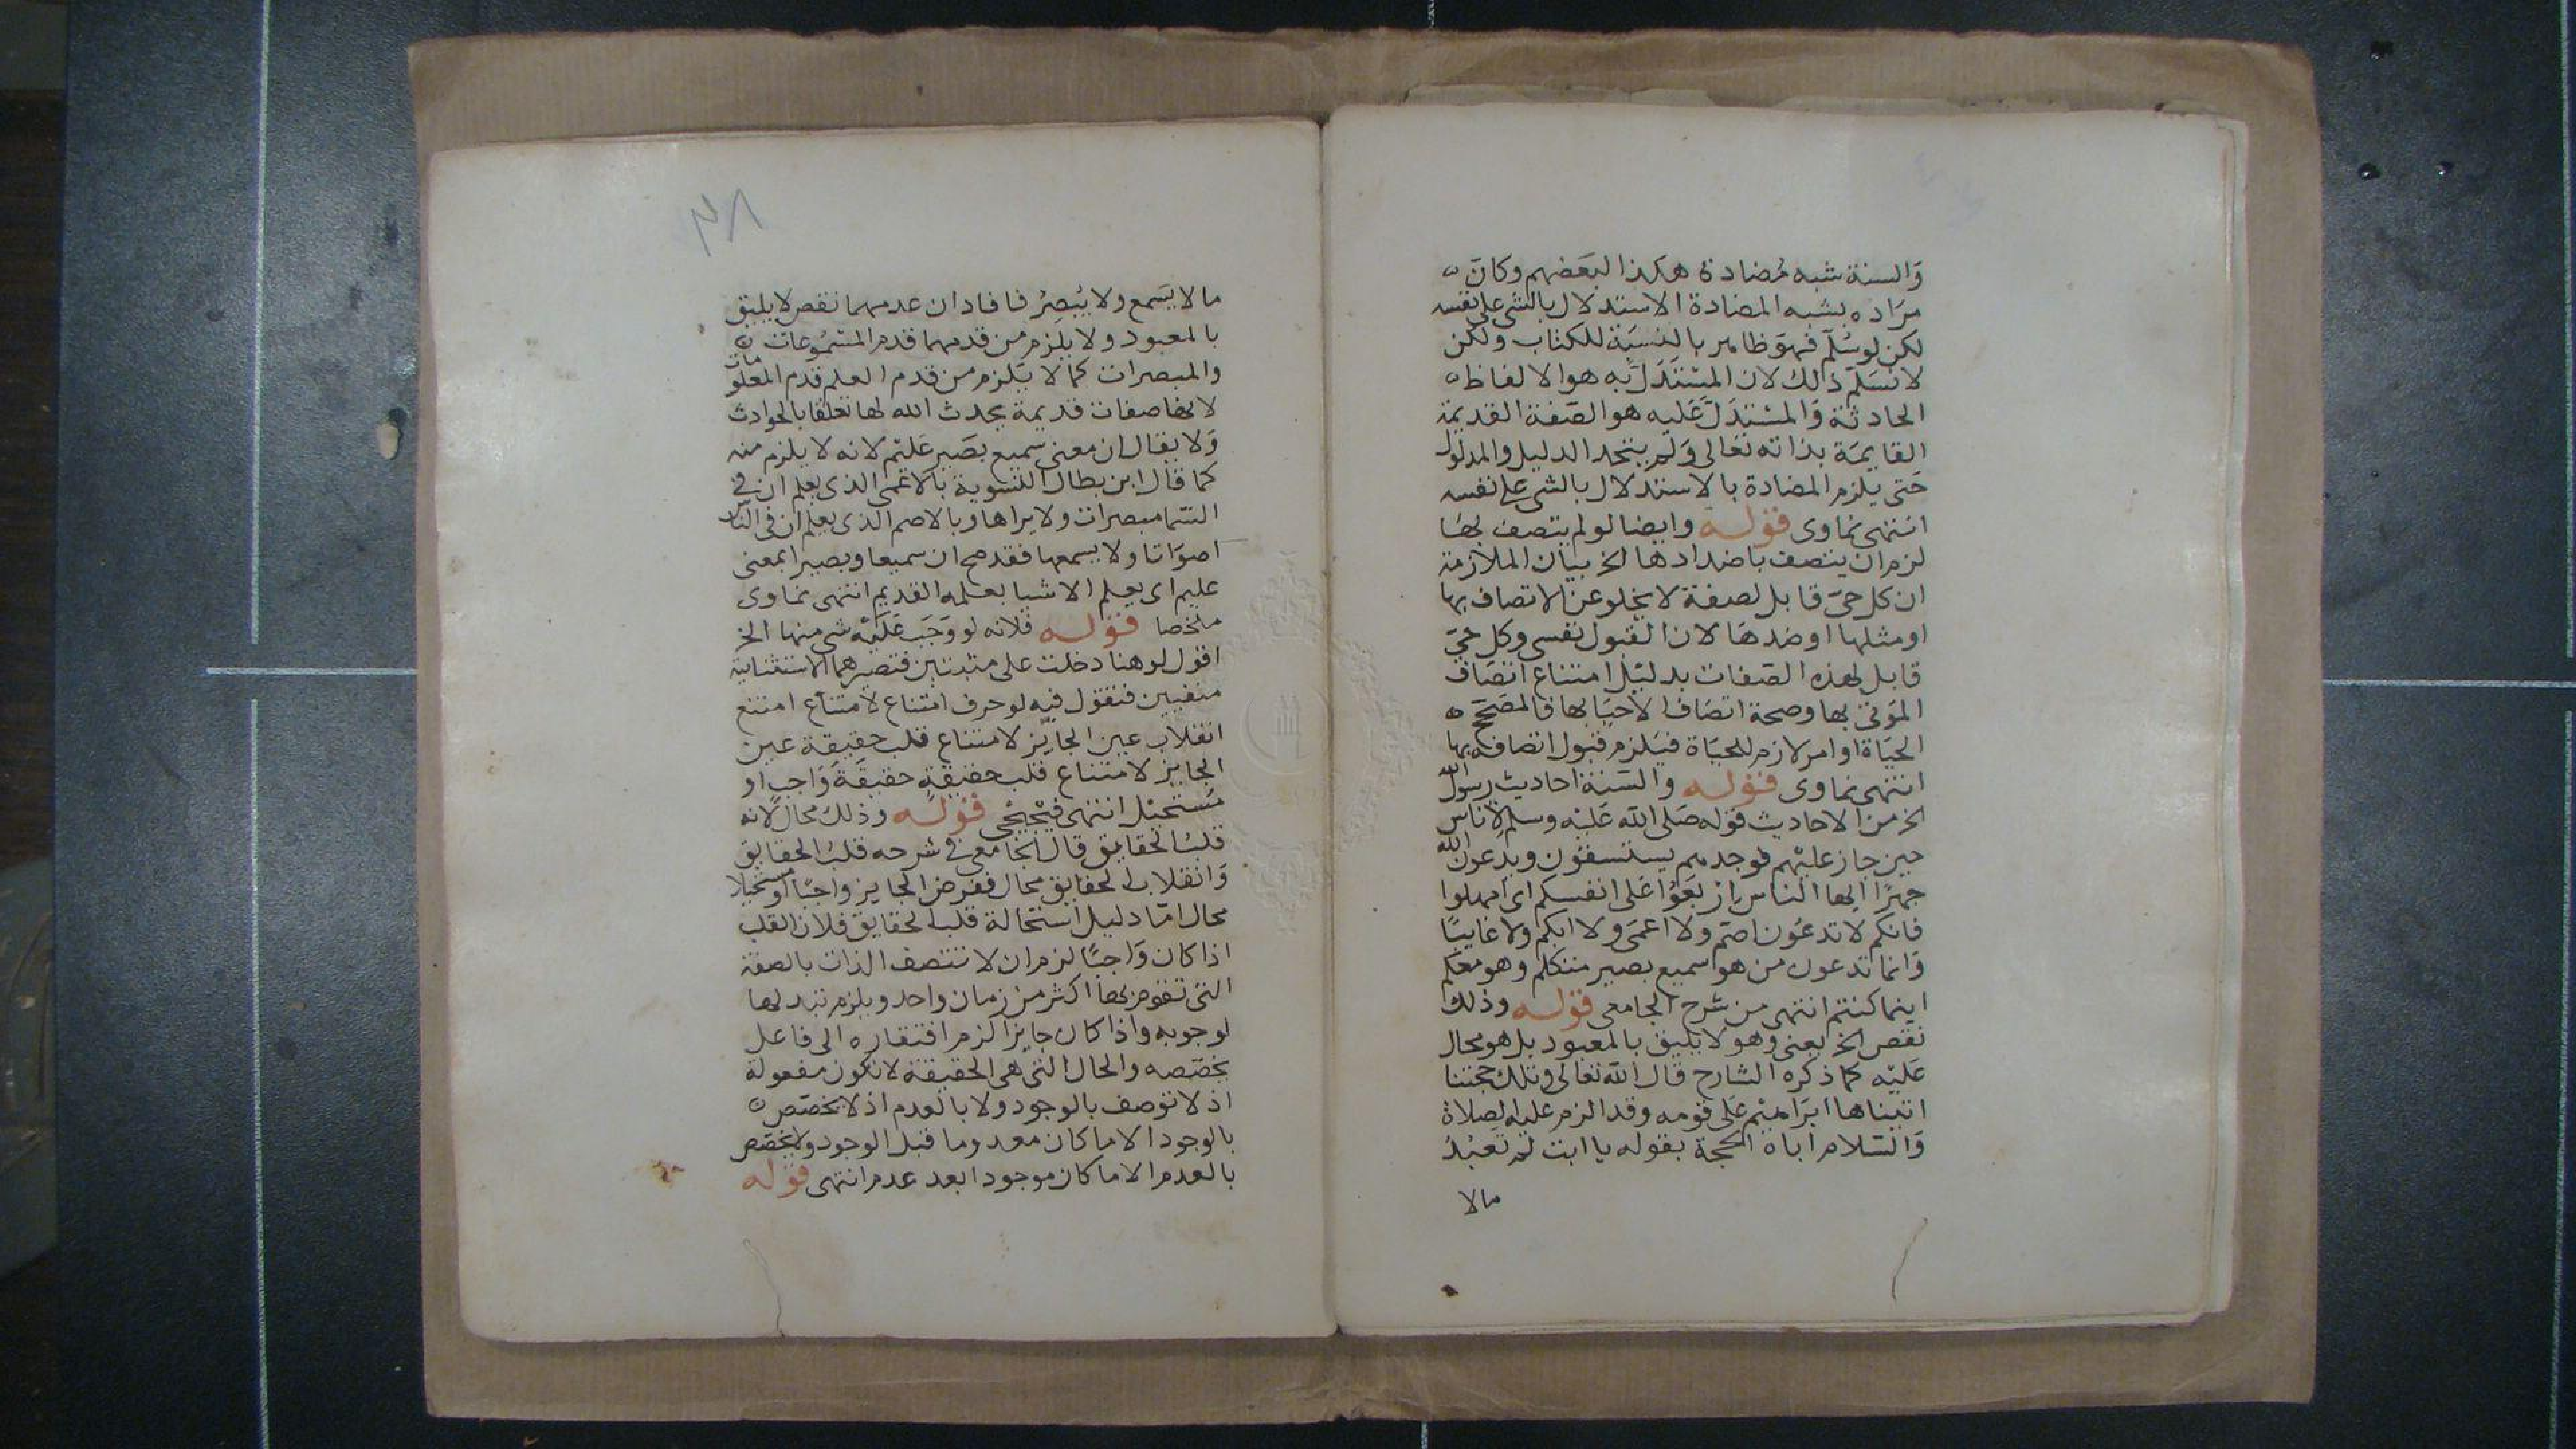 والسنة شبه مضادة هكذا لبعضهم وكان
مراده بشبه المضادة الاستدلال بالشى على نفسه
لكن لو سلم فهو ظاهر بالنسبة للكتاب ولكن
لا نسلم ذلك لان المستدل به هو الالفاظ
الحادثة والمستدل عليه هو الصفة القديمة
القايمة بذاته تعالى ولم يتحد الدليل والمدلول
حتى يلزم المضادة بالاستدلال بالشى على نفسه
انتهى نماوى قوله وايضا لو لم يتصف بها
لزم ان يتصف باضدادها الخ بيان الملازمة
ان كل حى قابل لصفة لا يخلو عن الاتصاف بها
او مثلها او ضدها لان القبول نفسى وكل حى
قابل لهذه الصفات بدليل امتناع اتصاف
الموتى بها وصحة اتصاف الاحيا بها فالمصحح
الحياة او امر لازم للحياة فيلزم قبول اتصافه بها
انتهى نماوى قوله والسنة احاديث رسول الله
الخ من الاحاديث قوله صلى الله عليه وسلم لاناس
حين جاز عليهم فوجدهم يستسقون ويدعون الله
جهرا ايها الناس اربعوا على انفسكم اى امهلوا
فانكم لا تدعون اصم ولا اعمى ولا ابكم ولا غايبا
وانما تدعون من هو سميع بصير متكلم وهو معكم
اينما كنتم انتهى من شرح الجامعى قوله وذلك
نقص الخ يعنى وهو لا يليق بالمعبود بل هو محال
عليه كما ذكره الشارح قال الله تعالى وتلك حجتنا
اتيناها ابراهيم على قومه وقد الزم عليه الصلاة
والسلام اباه الحجة بقوله يا ابت لم تعبد
مالا
٣٨
ما لا يسمع ولا يبصر فافاد ان عدمهما نقص لا يليق
بالمعبود ولا يلزم من قدمهما قدم المسموعات
والمبصرات كما لا يلزم من قدم العلم قدم المعلومات
لانها صفات قديمة يحدث الله لها تعلقا بالحوادث
ولا يقال ان معنى سميع بصير عليم لانه لا يلزم منه
كما قال ابن بطال التسوية بالاعمى الذى يعلم ان فى
السما مبصرات ولا يراها وبالاصم الذى يعلم ان فى الناس
اصواتا ولا يسمعها فقد صح ان سميعا وبصيرا بمعنى
عليم اى يعلم الاشيا بعلمه القديم انتهى نماوى
ملخصا قوله فلانه لو وجب عليه شى منها الخ
اقول لو هنا دخلت على مثبتين فتصيرهما الاستثنايية
منفيين فنقول فيه لو حرف امتناع لامتناع امتنع
انقلاب عين الجايز لامتناع قلب حقيقة عين
الجايز لامتناع قلب حقيقة حقيقة واجب او
مستحيل انتهى فيجيجى قوله وذلك محال لانه
قلب الحقايق قال الجامعى فى شرحه قلب الحقايق
وانقلاب الحقايق محال ففرض الجايز واجبا او مستحيلا
محال اما دليل استحالة قلب الحقايق فلان القلب
اذا كان واجبا لزم ان لا تتصف الذات بالصفة
التى تقوم بها اكثر من زمان واحد ويلزم تبدلها
لوجوبه واذا كان جايزا لزم افتقاره الى فاعل
يخصصه والحال التى هى الحقيقة لا تكون مفعولة
اذ لا توصف بالوجود ولا بالعدم اذ لا يخصص
بالوجود الا ما كان معدوما قبل الوجود ولا يخصص
بالعدم الا ما كان موجودا بعد عدم انتهى قوله